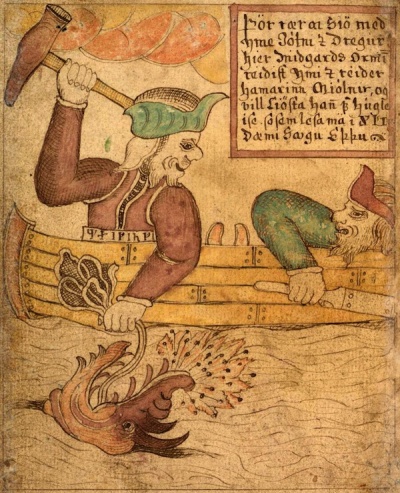 Þór rær a Siö med
Hyme Jötni & Dregur
hier Midgards Orm
reidist hmi & reider
hamarinn Miolnir, og
vill Liösta hañ
so sem lesa ma i XII
Dæmi Sögu Eddu